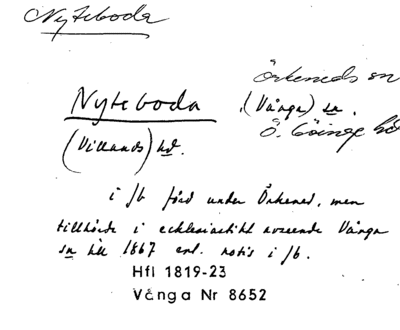 Nyteboda
Örkeneds sn
Nyteboda (Vånga) sn.
Ö. Göinge hd
(Villands) hd.
i jb förd under Örkened, men
tillhörde i ecklesiastikt avseende Vånga
sn till 1867 enl. notis i jb.
Hfl 1819-23
Vånga Nr 8652